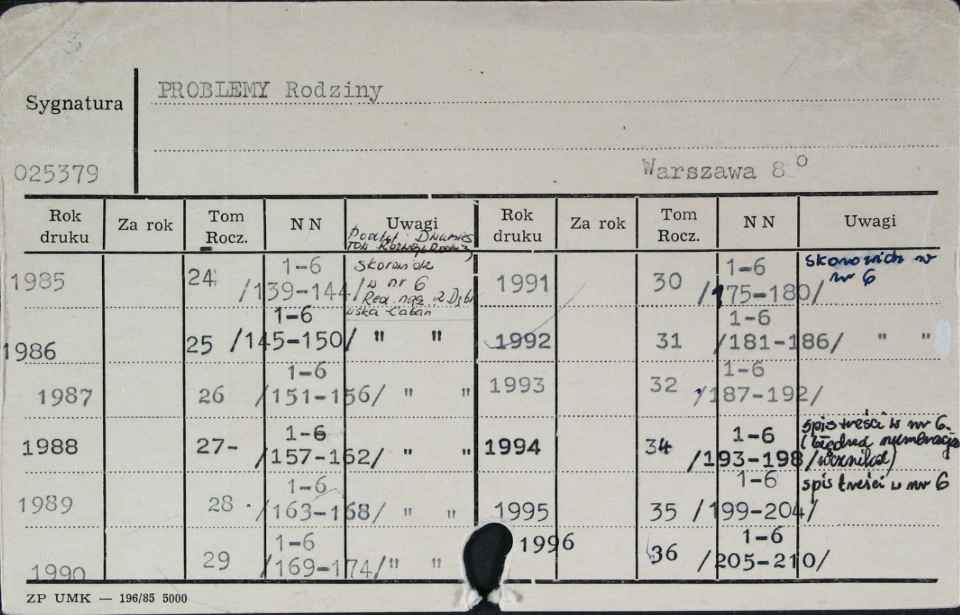 PROBLEMY Rodziny
Sygnatura
025379
Warszawa 8°
Rok druku Za rok Tom Rocz. N N Uwagi Rok druku Za rok Tom Rocz. N N Uwagi
1985 24 1-6 /139-144/ skorowidz w nr 6
1991 30 1-6 /175-180/ skorowidz w nr 6
1986 25 1-6 /145-150/ " "
1992 31 1-6 /181-186/ " "
1987 26 1-6 /151-156/ " "
1993 32 1-6 /187-192/
1988 27- 1-6 /157-162/ " "
1994 34 1-6 /193-198/ spis treści w nr 6. (błędna numeracja
1989 28 1-6 /163-168/ " "
1995 35 1-6 /199-204/ spis treści w nr 6
1990 29 1-6 /169-174/ " "
1996 36 1-6 /205-210/
ZP UMK — 196/85 5000